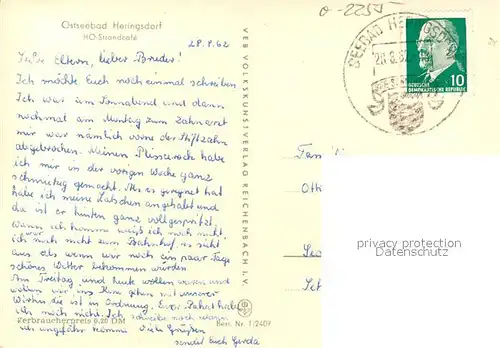 Ostseebad Heringsdorf
HO-Strandcafé
28.8.62
Liebe Eltern, lieber Bruder!
Ich möchte Euch noch einmal schreiben
Ich war am Sonnabend und dann
nochmal am Montag zum Zahnarzt
mir war nämlich vorne der Stiftzahn
abgebrochen. Meinen Plisseerock habe
ich mir in der vorigen Woche ganz
schmutzig gemacht. Als es geregnet hat
habe ich meine Latschen angehabt und
da ist er hinten ganz vollgespritzt.
Wann ich komme weiß ich noch nicht
ich noch nicht zum Bahnhof. es sieht
aus als wenn wir noch ein paar Tage
schönes Wetter bekommen würden
Am Freitag und heute wollen
wollen wir ins Kino gehen mit unserer
Wirtin die ist in Ordnung. Euer
noch nicht. Ich schreibe noch wann
ich ungefähr komme Viele Grüßen
sendet Euch Gerda
Verbraucherpreis 0,20 DM
Best. Nr. 1/2409
VEB VOLKSKUNSTVERLAG REICHENBACH I. V.
0-2257
SEEBAD HERINGSDORF
28.8.62
10
DEUTSCHE
DEMOKRATISCHE REPUBLIK
Famili
Ott
privacy protection
www.oldthing.de